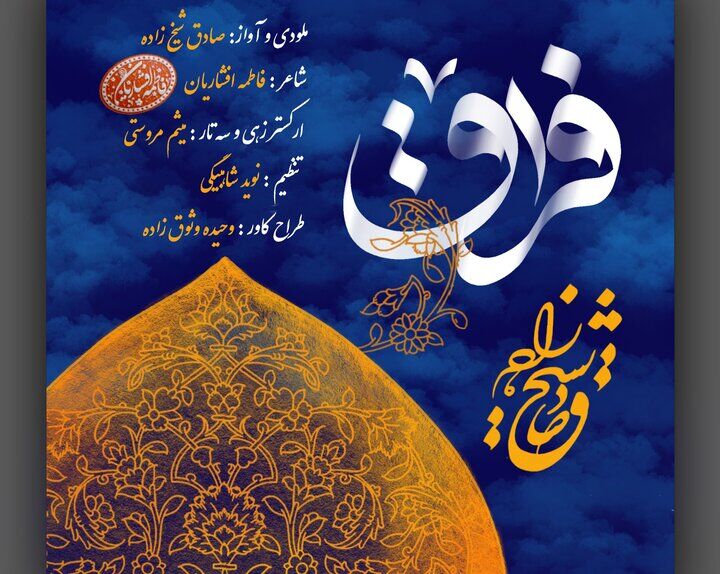 ملودی و آواز: صادق شیخ زاده
شاعر: فاطمه افشاریان
ارکستر زهی و سه تار: میثم مروستی
تنظیم: نوید شاهبیگی
طراح کاور: وحیده وثوق زاده
فراق
صادق شیخ زاده